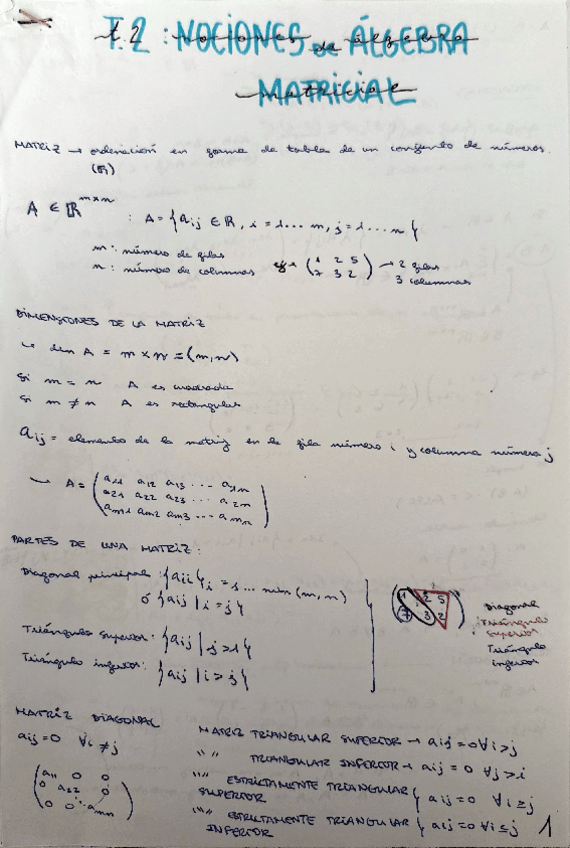 T.2: NOCIONES de ÁLGEBRA
MATRICIAL
MATRIZ → ordenación en forma de tabla de un conjunto de números.
(ℝ)
A ∈ ℝ^{m×n} : A = {aij ∈ ℝ, i = 1... m, j = 1... n}
m: número de filas
n: número de columnas ej → (1 2 5 / 7 3 2) → 2 filas
3 columnas
DIMENSIONES DE LA MATRIZ
↳ dim A = m × n = (m, n)
Si m = n A es cuadrada
Si m ≠ n A es rectangular
aij = elemento de la matriz en la fila número i y columna número j
↳ A = (a11 a12 a13 ... a1n
a21 a22 a23 ... a2n
am1 am2 am3 ... amn)
PARTES DE UNA MATRIZ:
Diagonal principal: {aii} i = 1... min (m, n)
ó {aij | i = j}
Triángulo superior: {aij | j > i}
Triángulo inferior: {aij | i > j}
(1 2 5
7 3 2)
Diagonal
Triángulo
Superior
Triángulo
inferior
MATRIZ DIAGONAL
aij = 0 ∀i ≠ j
(a11 0 0
0 a22 0
0 0 ... amn)
MATRIZ TRIANGULAR SUPERIOR → aij = 0 ∀i > j
"" TRIANGULAR INFERIOR → aij = 0 ∀j > i
"" ESTRICTAMENTE TRIANGULAR SUPERIOR { aij = 0 ∀i ≥ j
"" ESTRICTAMENTE TRIANGULAR INFERIOR { aij = 0 ∀i ≤ j
1